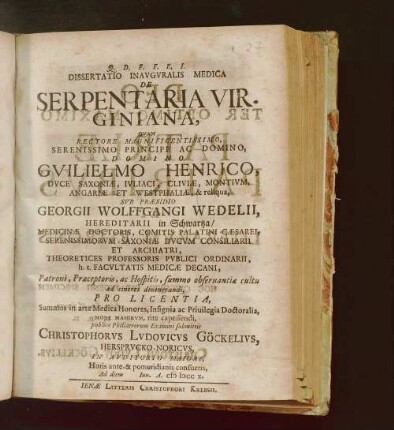 Q. D. F. F. E. I.
DISSERTATIO INAVGVRALIS MEDICA
DE
SERPENTARIA VIR-
GINIANA,
QUAM
RECTORE MAGNIFICENTISSIMO,
SERENISSIMO PRINCIPE AC DOMINO,
DOMINO
GVILIELMO HENRICO,
DVCE SAXONIÆ, IVLIACI, CLIVIÆ, MONTIVM,
ANGARIÆ ET WESTPHALIÆ, & reliqua,
SVB PRÆSIDIO
GEORGII WOLFFGANGI WEDELII,
HEREDITARII in Schwartza/
MEDICINÆ DOCTORIS, COMITIS PALATINI CÆSAREI,
SERENISSIMORVM SAXONIÆ DVCVM CONSILIARII
ET ARCHIATRI,
THEORETICES PROFESSORIS PVBLICI ORDINARII,
h. t. FACVLTATIS MEDICÆ DECANI,
Patroni, Præceptoris, ac Hospitis, summo observantiæ cultu
ad cineres devenerandi,
PRO LICENTIA,
Summos in arte Medica Honores, Insignia ac Privilegia Doctoralia,
MORE MAIORVM, rite capessendi,
publico Philiatrorum Examini submittit
CHRISTOPHORVS LVDOVICVS GÖCKELIVS,
HERSPRVCKO-NORICVS,
IN AVDITORIO MAIORI,
Horis ante- & pomeridianis consuetis,
Ad diem Iun. A. cIɔ Iɔcc x.
IENÆ LITTERIS CHRISTOPHORI KREBSII.